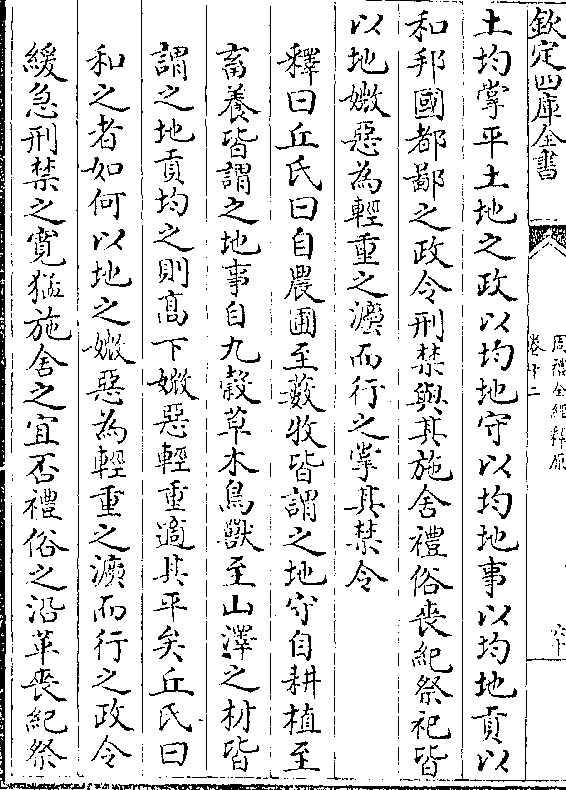 欽定四庫全書
周禮全經釋原
卷十二
六十
土均掌平土地之政以均地守以均地事以均地貢以
和邦國都鄙之政令刑禁與其施舍禮俗喪紀祭祀皆
以地媺惡為輕重之灋而行之掌其禁令
釋曰丘氏曰自農圃至藪牧皆謂之地守自耕植至
畜養皆謂之地事自九穀草木鳥獸至山澤之材皆
謂之地貢均之則髙下媺惡輕重適其平矣丘氏曰
和之者如何以地之媺惡為輕重之灋而行之政令
緩急刑禁之寛猛施舍之宜否禮俗之沿革喪紀祭